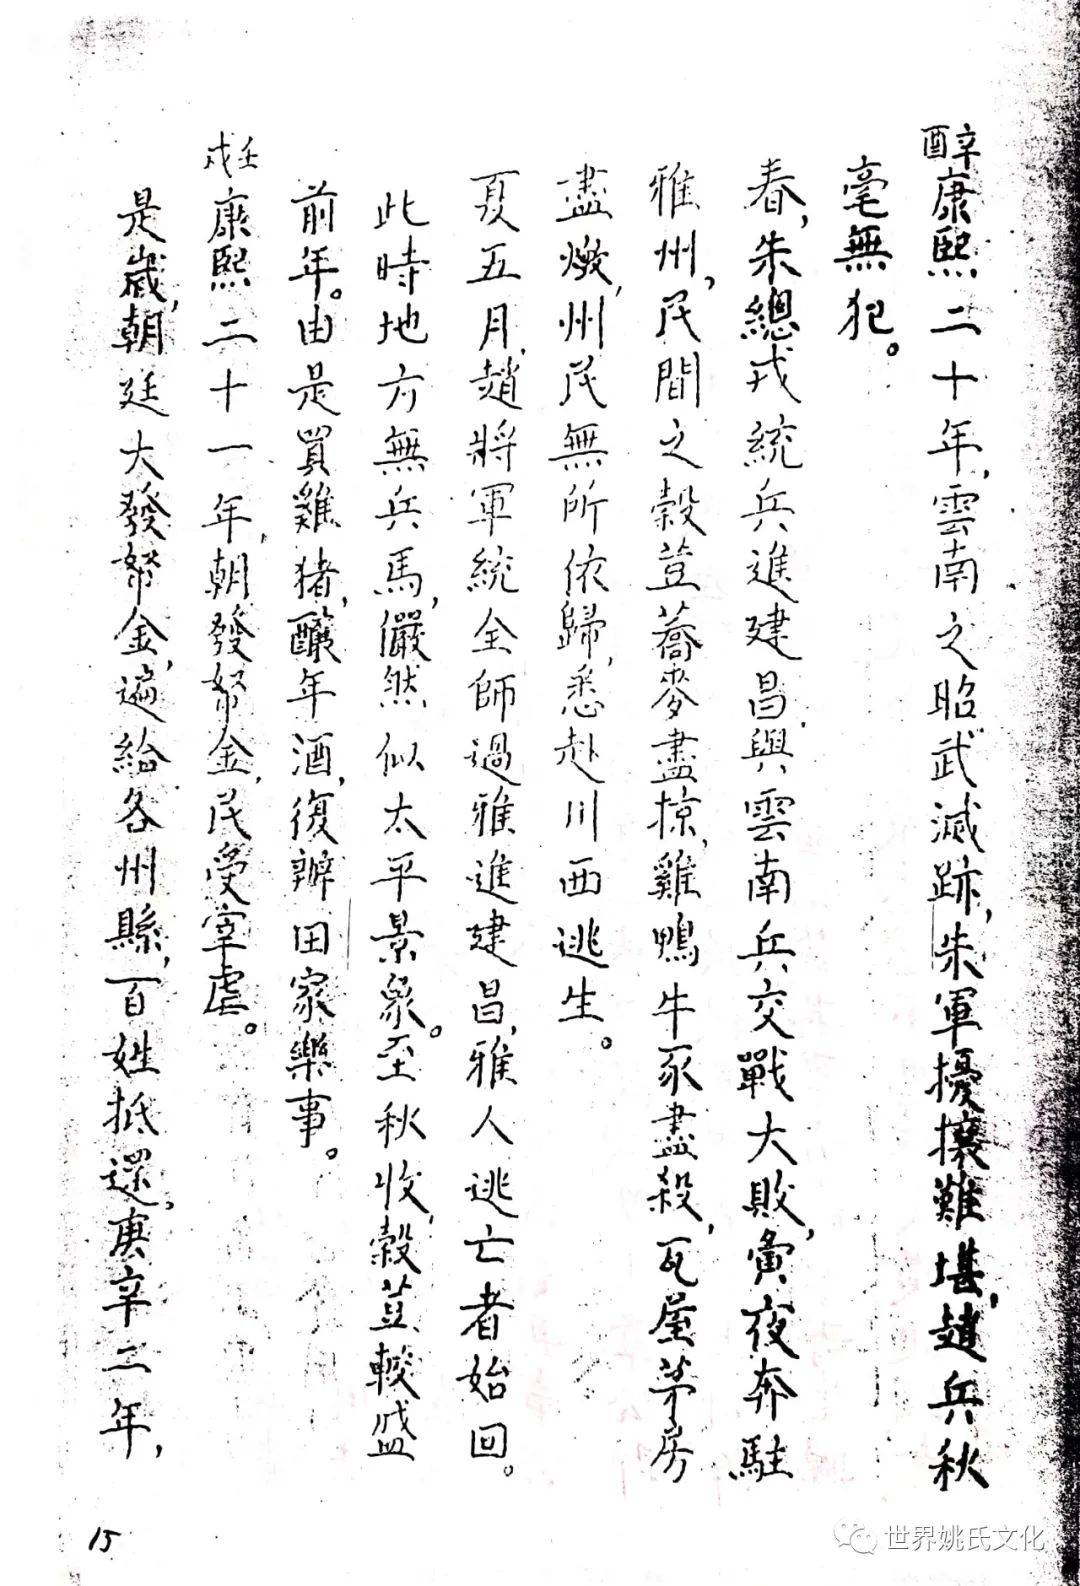 辛酉康熙二十年，雲南之昭武滅跡，朱軍擾攘難堪，趙兵秋
毫無犯。
春，朱總戎統兵進建昌，與雲南兵交戰大敗，夤夜奔駐
雅州，民間之穀荳蕎麥盡掠，雞鴨牛豕盡殺，瓦屋茅房
盡燬，州民無所依歸，悉赴川西逃生。
夏五月，趙將軍統全師過雅進建昌，雅人逃亡者始回。
此時地方無兵馬，儼然似太平景象。至秋收，穀荳較盛
前年。由是買雞猪，釀年酒，復辦田家樂事。
壬戌康熙二十一年，朝發帑金，民受宰虐。
是歲，朝廷大發帑金，遍給各州縣，百姓抵還，庚辛二年，
15
世界姚氏文化